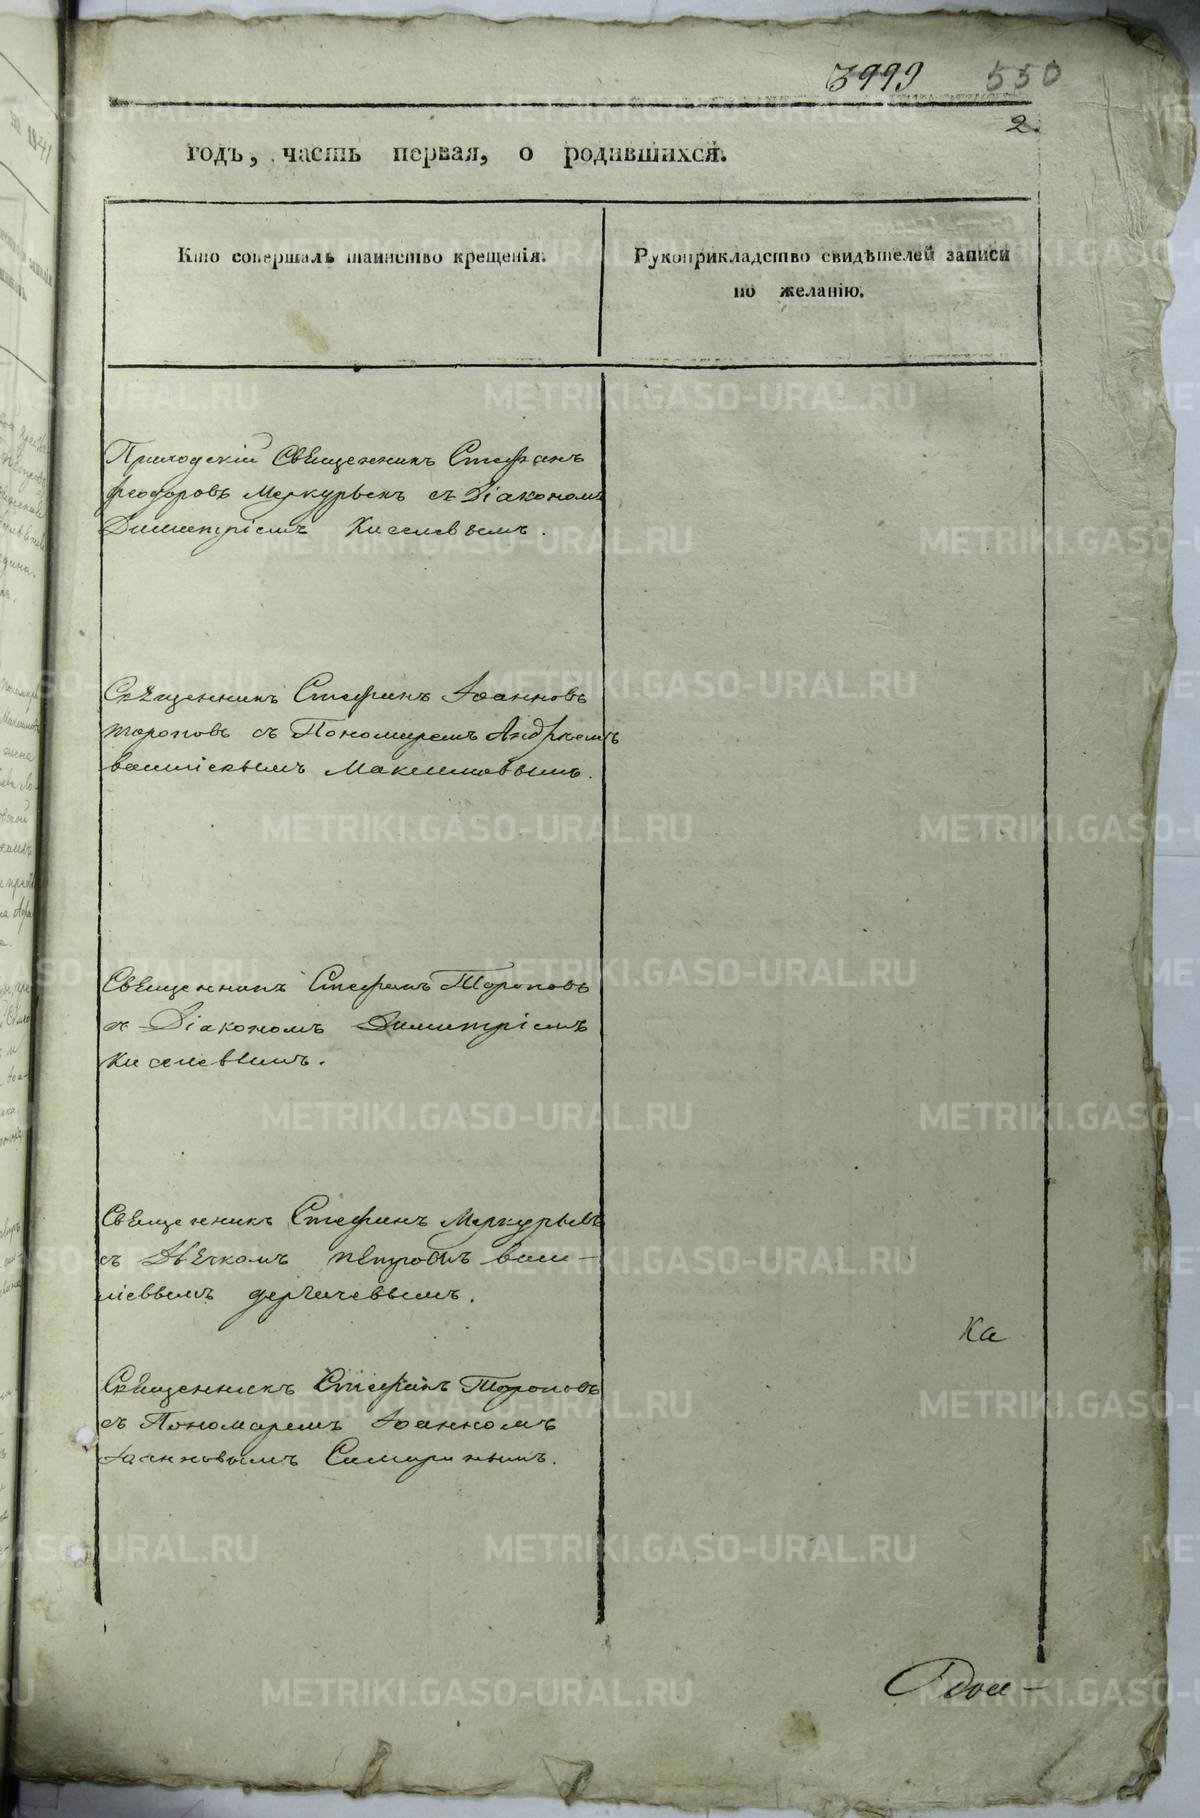 3999 550
2.
годъ, часть первая, о родившихся.
Кто совершалъ таинство крещенія.
Рукоприкладство свидѣтелей записи
по желанію.
Приходскій Священникъ Стефанъ
феодоровъ Меркурьевъ съ Діакономъ
Димитріемъ Киселевымъ.
Священникъ Стефанъ Іоанновъ
тороповъ съ Пономаремъ Андреемъ
василіевымъ Максимовымъ.
Священникъ Стефанъ Тороповъ
съ Діакономъ Димитріемъ
киселевымъ.
Священникъ Стефанъ Меркурьевъ
съ Дьячкомъ петромъ васи-
ліевымъ дергачевымъ.
Ка
Священникъ Стефанъ Тороповъ
съ Пономаремъ Іоанномъ
Іоанновымъ
METRIKI.GASO-URAL.RU